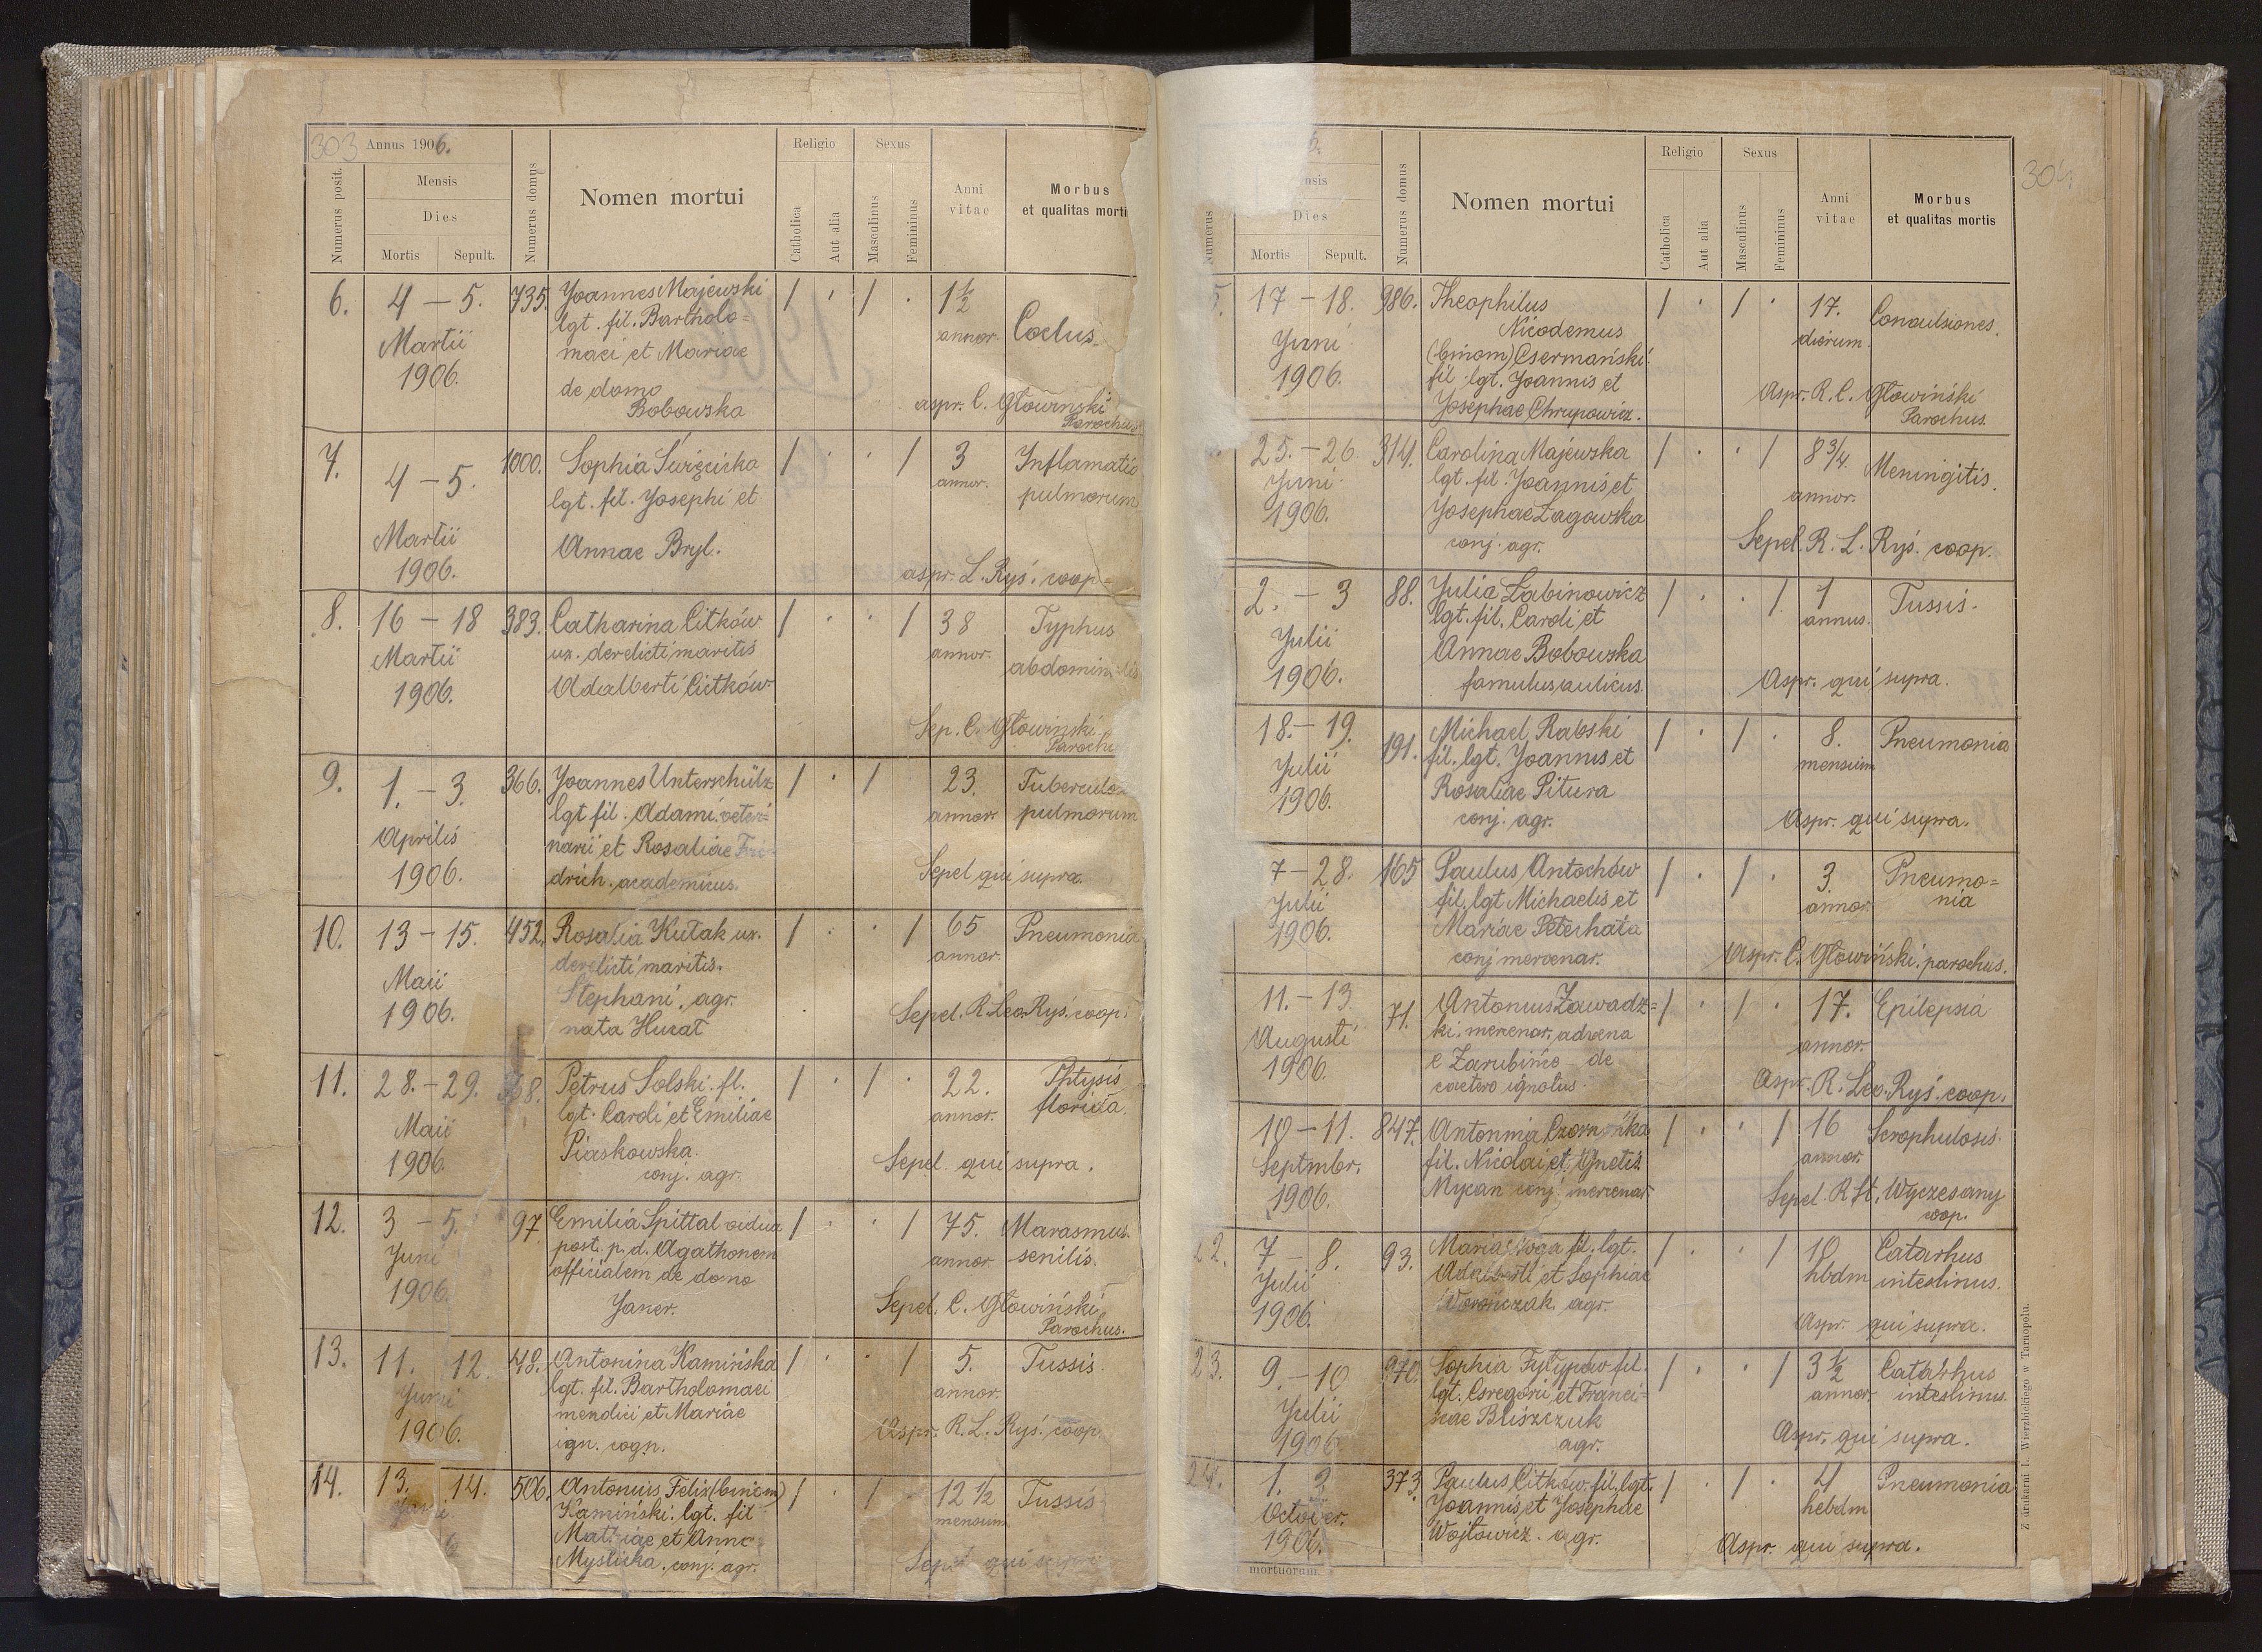 303 Annus 1906.
Numerus posit.
Mensis
Dies
Mortis Sepult.
Numerus domus
Nomen mortui
Religio
Catholica Aut alia
Sexus
Masculinus Femininus
Anni vitae
Morbus
et qualitas morti
6. 4 – 5. 735. Joannes Majewski / · / · 1½
lgt. fil. Bartholo= annor. Coclus.
Martii maei et Mariae
1906. de domo
Bobowska aspr. C. Głowinski
Parochus
7. 4 – 5. 1000. Sophia Świzcicka / · · / 3 Inflamatio
lgt. fil. Josephi et annor. pulmorum
Martii Annae Bryl.
1906. aspr. L. Ryś. coop=
8. 16 – 18 383. Catharina Citków / · · / 38 Typhus
Martii ux. derelicti maritis annor. abdomin
1906. Adalberti Citków.
Sep. C. Głowinski
Parochu
9. 1. – 3. 366. Joannes Unterschülz / · / 23. Tuberculo
lgt fil. Adami. veteri= annor. pulmorum
Aprilis narii et Rosaliae Fri=
1906. drich. academicus. Sepel qui supra.
10. 13 – 15. 452. Rosalia Kutak ux. / · · / 65 Pneumonia
derelicti maritis. annor.
Maii Stephani. agr.
1906. nata Huzat Sepel. R. Leo Ryś. coop.
11. 28. – 29. Petrus Solski. fl. / · / · 22. Phtysis
lgt. Caroli et Emiliae annor. florida.
Maii Piaskowska.
1906. conj. agr. Sepel. qui supra.
12. 3 – 5. 97. Emilia Spittal vidua / · · / 75. Marasmus
Juni post. p. d. Agathonem annor senilis.
1906. officialem de domo
Janer. Sepel. C. Głowiński
Parochus.
13. 11. 12. 48. Antonina Kamińska / · · / 5. Tussis.
Juni lgt. fil. Bartholomaei annor.
1906. mendici et Mariae
ign. cogn. Aspr. R. L. Ryś. coop.
14. 13. 14. 506. Antonius Felix (binom) / · / 12 ½ Tussis
Kamiński. lgt. fil mensium
Mathiae et Anna
Myslicka. conj. agr. Sepel qui supra
304.
6.
Numerus
Dies
Mortis Sepult.
Numerus domus
Nomen mortui
Religio
Catholica Aut alia
Sexus
Masculinus Femininus
Anni vitae
Morbus
et qualitas mortis
5. 17 – 18. 986. Theophilus / · / · 17. Convulsiones.
Juni Nicodemus dierum.
1906. (binom) Csermański.
fil. lgt. Joannis et Aspr. R. C. Głowiński
Josephae Chrupowicz. Parochus.
25. – 26. 314. Carolina Majewska / · · / 8 ¾ Meningitis.
Juni lgt. fil. Joannis et annor.
1906. Josephae Zagowska
conj. agr. Sepel. R. L. Ryś. coop.
2. – 3 88. Julia Labinowicz / · · / 1 Tussis.
Julii lgt. fil. Caroli et annus.
Annae Bobowska
1906. famulus aulicus. Aspr. qui supra.
18. – 19. 191. Michael Rabski / · / · 8. Pneumonia
Julii fil. lgt. Joannis et mensium
1906. Rosaliae Pitura
conj. agr. Aspr. qui supra.
7 – 28. 165 Paulus Antochów / · / · 3. Pneumo=
Julii fil. lgt Michaelis et annor. nia
1906. Mariae Peterhata
conj mercenar. Aspr. C. Głowiński. parochus.
11. – 13. 71. Antonius Zawadz= / · / · 17. Epilepsia
Augusti ki. mercenar. advena annor.
1906. e Zarubiniec – de
caetero ignotus. Aspr. R. Leo. Ryś. coop.
10 – 11. 847. Antonina / · · / 16 Scrophulosis.
Septmbr. fil. Nicolai et Agnetis annor.
1906. Mycan conj. mercenar Sepel. R. St. Wyczesany
coop.
22. 7 – 8. 93. Maria fil. lgt. / · · / 10 Catarhus
Julii Adalberti et Sophiae hbdm intestinus.
1906. Worończak. agr.
Aspr. qui supra.
23. 9. – 10 970. Sophia Fylypów fil. / · · / 3 ½ Catarhus
Julii lgt. Gregorii et Franci= annor intestinus.
1906 scae Bliszczuk
agr. Aspr. qui supra.
24. 1. 2 373. Paulus Citków. fil. lgt. / · / · 4 Pneumonia
October. Joannis et Josephae hebdm
1906. Wojtowicz. agr.
Aspr. qui supra.
mortuorum.
Z drukarni L. Wierzbickiego w Tarnopolu.